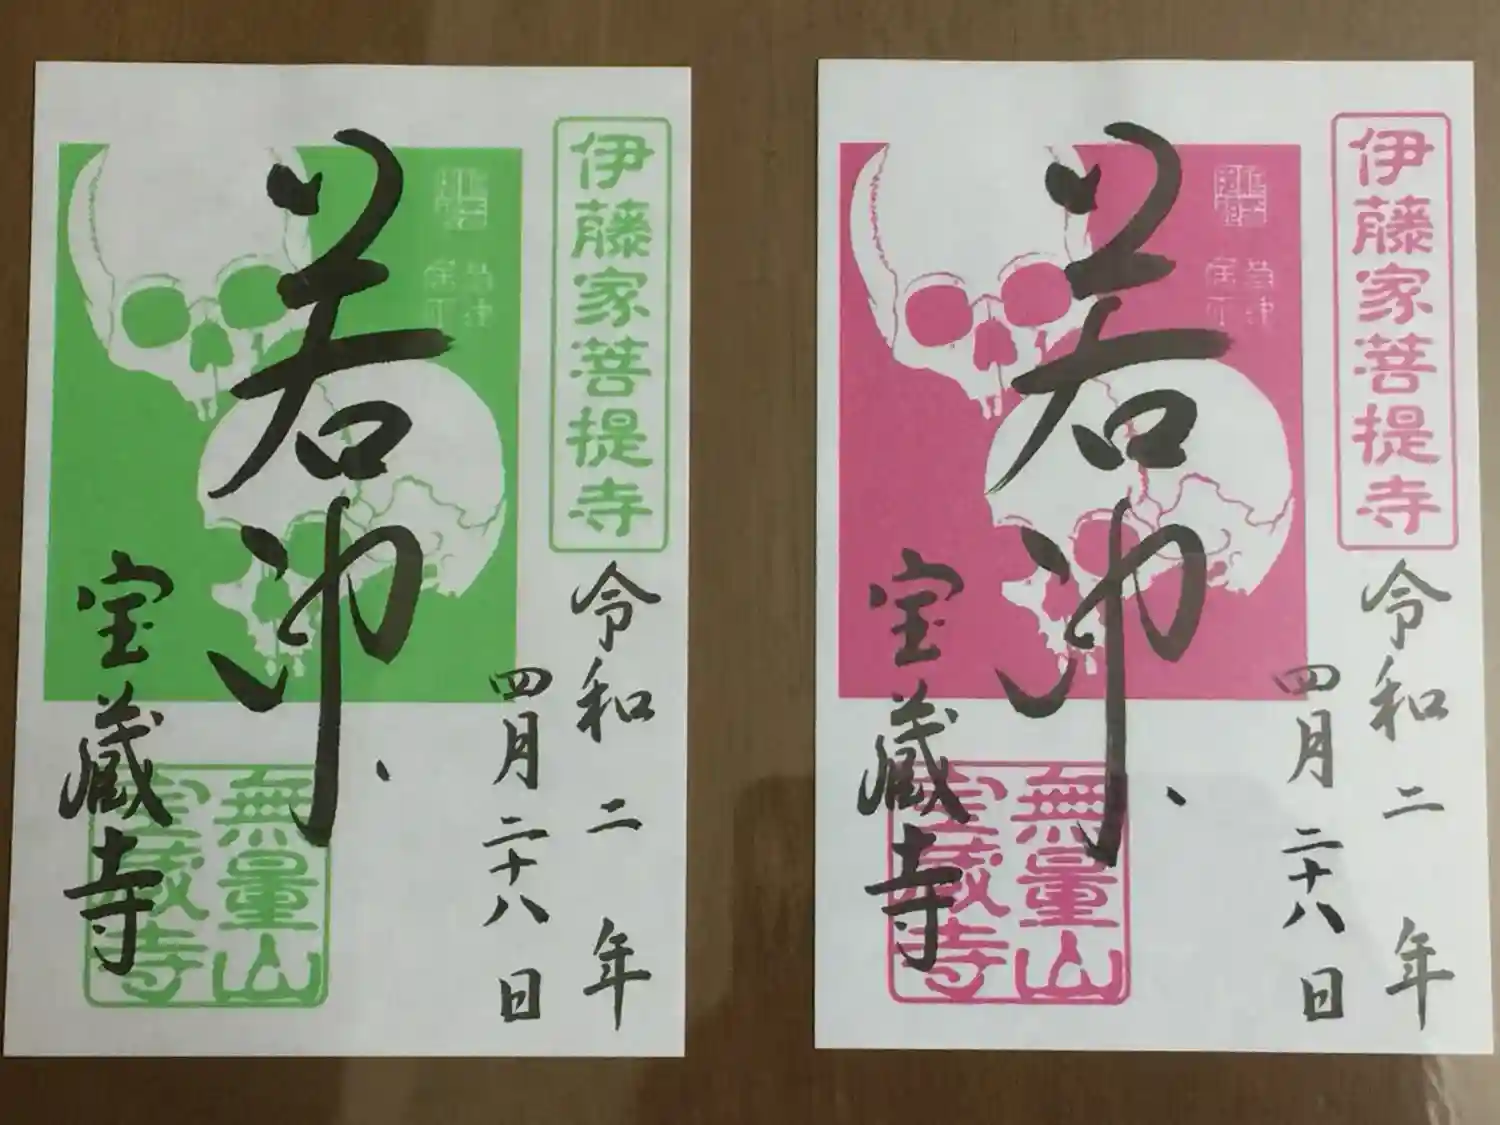 伊藤家菩提寺
令和二年
四月二十八日
若冲
宝蔵寺
無量山
宝蔵寺
伊藤家菩提寺
令和二年
四月二十八日
若冲
宝蔵寺
無量山
宝蔵寺